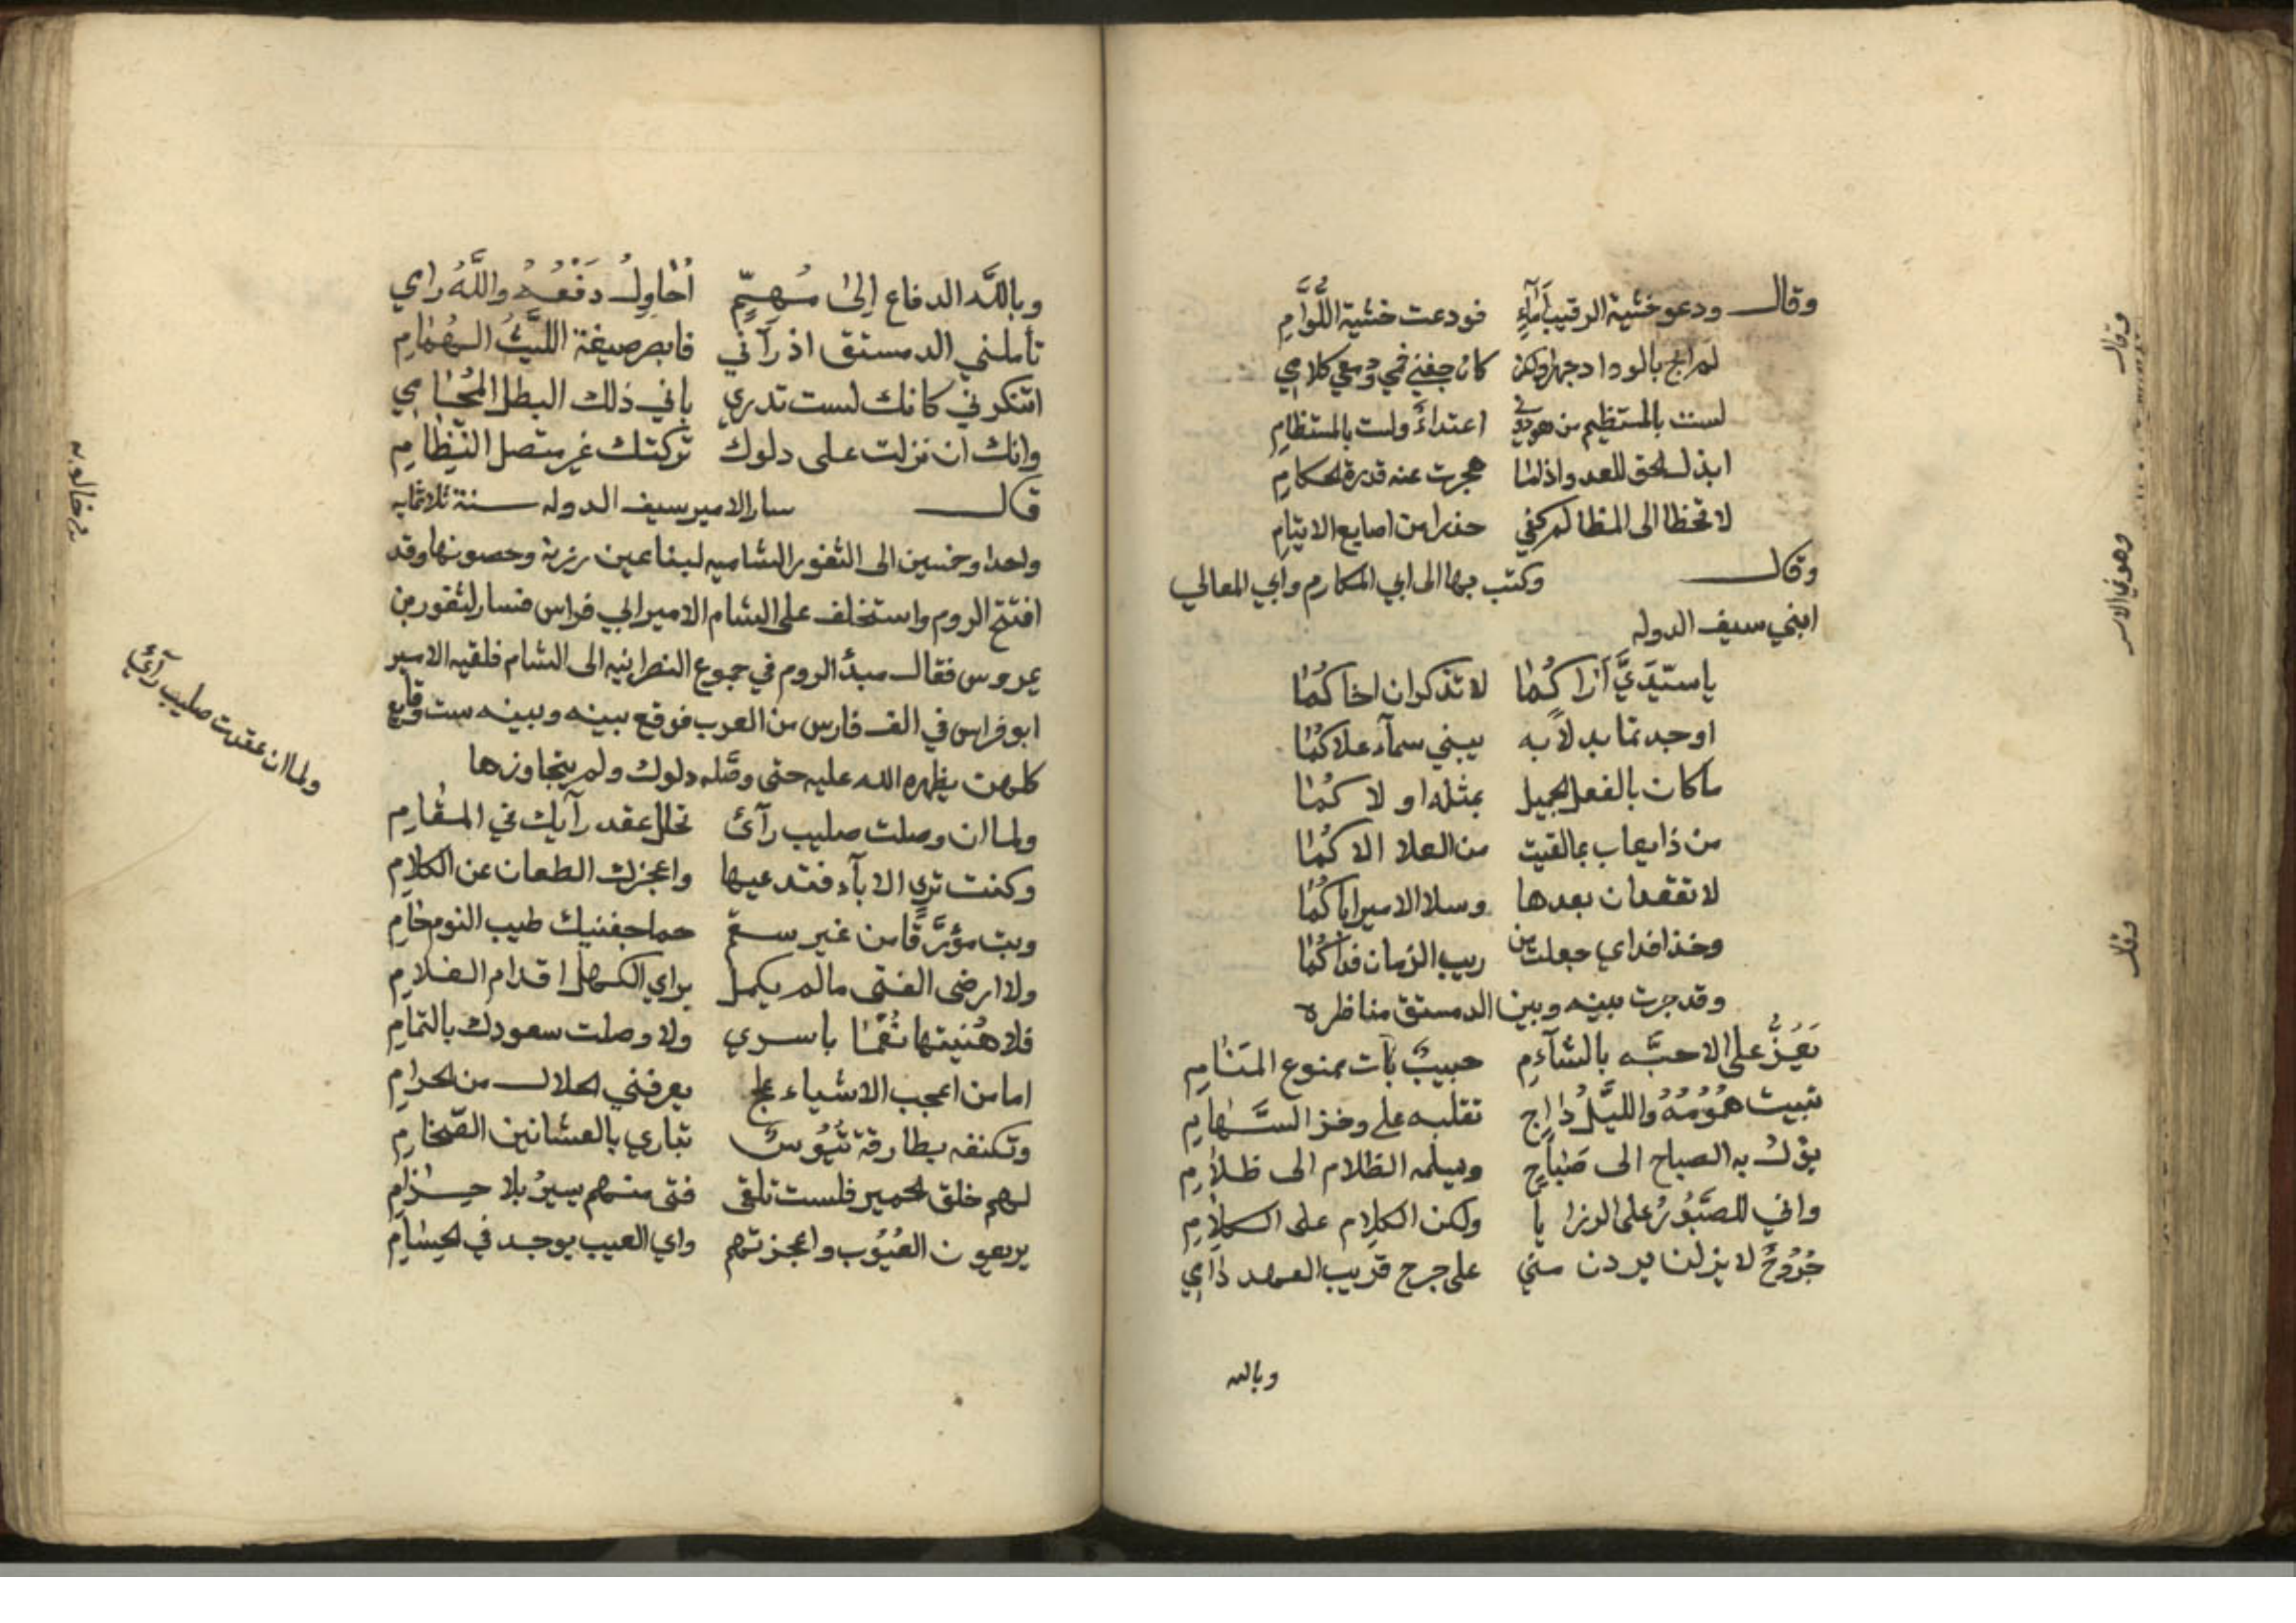 وقال ودعو خشية الرقيب بايماء فودعت خشية اللُّوَّامِ
لم ابح بالوداد جهرا ولكن كان جفني فمي ودمعي كلامي
لست بالمستظيم من هو دوني اعتداءً ولست بالمستظام
ابذل الحق للعدو اذا ما عجزت عنه قدرة الحكام
لا تخطا الى المظالم كفي حذرا من اصابع الايتام
وقال وكتب بها الى ابي المكارم وابي المعالي
ابني سيف الدوله
يا سيّديَّ اراكُما لا تذكران اخاكُما
اوجدتما بدلاً به يبني سمآء علاكُما
ما كان بالفعل الجميل بمثله اولاكُما
من ذا يعاب بما لقيت من العلا الاكُما
لا تقعدان بعدها وسلا الامير اباكُما
وخذا فداي جعلت من ريب الزمان فداكُما
وقد جرت بينه وبين الدمستق مناظره
يَعُزُّ على الاحبّه بالشآم حبيبٌ بات ممنوع المنام
تبيت همُومُهُ والليلُ داج تقلبه على وخز السَّهام
يؤل به الصباح الى صَباحٍ ويسلمه الظلام الى ظلام
واني للصَّبُورُ على الرزايا ولكن الكلام على الكلامِ
جُرُوحٌ لا يزلن يردن مني على جرح قريب العهد دامي
وبالله
وبالله الدفاع الى مُهِمٍّ أحاولُ دَفْعُهُ واللَّهُ رامي
تأملني الدمستق اذ رآني فابصر صيغة الليث الهُمام
اتنكرني كانك لست تدري باني ذلك البطل المُحامي
وانك ان نزلت على دلوك تركتك غير متصل النّظام
قال سار الامير سيف الدوله سنة ثلاثمايه
واحدا وخمسين الى الثغور الشاميه لبنا عين زربة وحصونها وقد
افتتح الروم واستخلف على الشام الامير ابي فراس فسار لثغور بن
في جموع النصرانيه الى الشام فلقيه الامير
ابو فراس في الف فارس من العرب فوقع بينه وبينه ست وقايع
كلهن يظهره الله عليه حتى وصّله دلوك ولم يتجاوزها
ولما ان وصلت صليب رآئ تحلل عقد رآيك في المقام
وكنت تري الابآء فتدعيها واعجزك الطعان عن الكلام
وبت مؤرَّقًا من غير سقم حما جفنيك طيب النوم حام
ولا ارضى الفتى ما لم يكمل براي الكهل اقدام الغلام
فلا هُنيتها نُعْمَا باسري ولا وصلت سعودك بالتمام
اما من اعجب الاشياء علج يعرفني الحلال من الحرام
وتكنفه بطارقة تُيُوسٌ تباري بالعثانين الضّخام
لهم خلق الحمير فلست تلقى فتى منهم يسيرُ بلا حزام
يريعون العُيُوب واعجزتهم واي العيب يوجد في الحسام
ولما ان عقدت صليب رآئ
وقال
وهو في الاسر
وقال